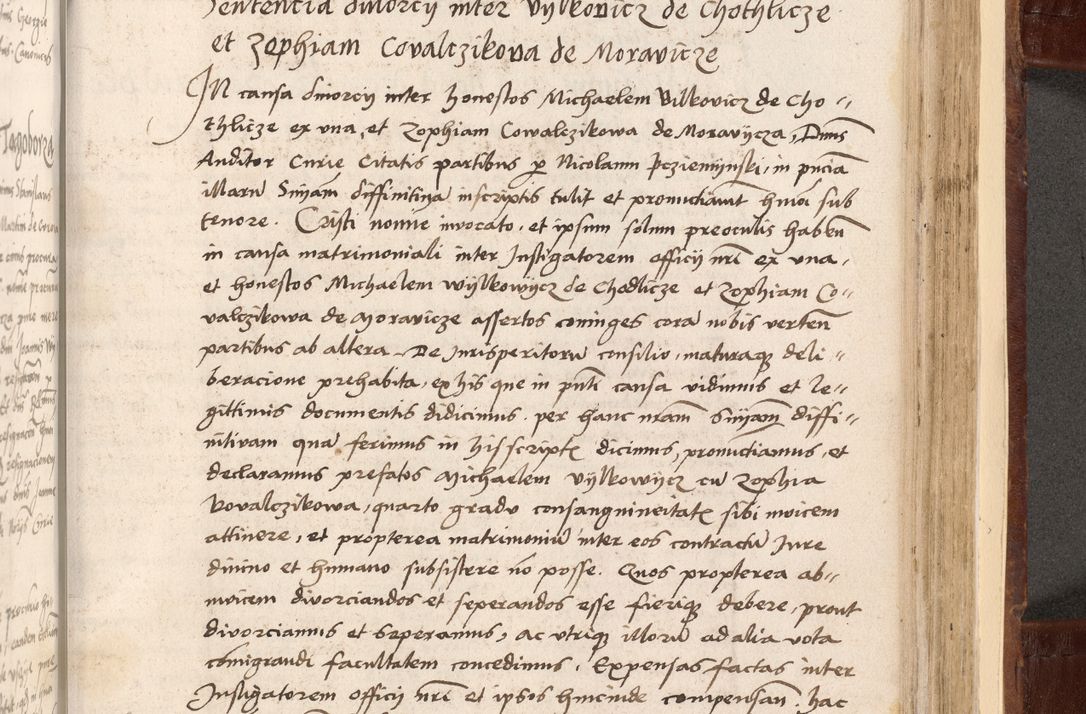 Sentencia divorcij inter Vylkovicz de Chothlicze
et Zophiam Covalczikova de Moravicze
IN causa divorcij inter honestos Michaelem Vilkovicz de Cho〃
thlicze ex vna, et Zophiam Cowalczikowa de Moravycza, Dnus
Auditor Curie Citatis partibus p Nicolaum Pczieminski, in pntia
illaru Sniam diffinitiva inscriptis tulit et pronuctiavit hmoi sub
tenore. Cristi nomie invocato, et ipsum solum preoculis haben
in causa matrimoniali inter Instigatorem officij nri ex vna,
et honestos Michaelem wylkowycz de Chodlicze et Zophiam Co〃
valczikowa de Moravicze assertos coniuges cora nobis verten
partibus ab altera. De Jurisperitoru consilio, maturaq deli〃
beracione prehabita, ex his que in pnti causa vidimus et le〃
gittimis documentis didicimus. per hanc nram Sniam diffi〃
nitivam qua ferimus in his script dicimus, pronuctiamus, et
declaramus prefatos Michaelem Vylkowycz cu Zophia
Kovalczikowa, quarto gradu consanguineitat sibi invicem
attinere, et propterea matrimoniu inter eos contractu Jure
divino et humano subsistere no posse. Quos propterea ab〃
invicem divorciandos et seperandos esse fieriq debere, prout
divorciamus et Seperamus, ac vtriq illoru ad alia vota
comigrandi facultatem concedimus, Expensas factas inter
Instigatorem officij nri et ipsos hincinde compensan. hac